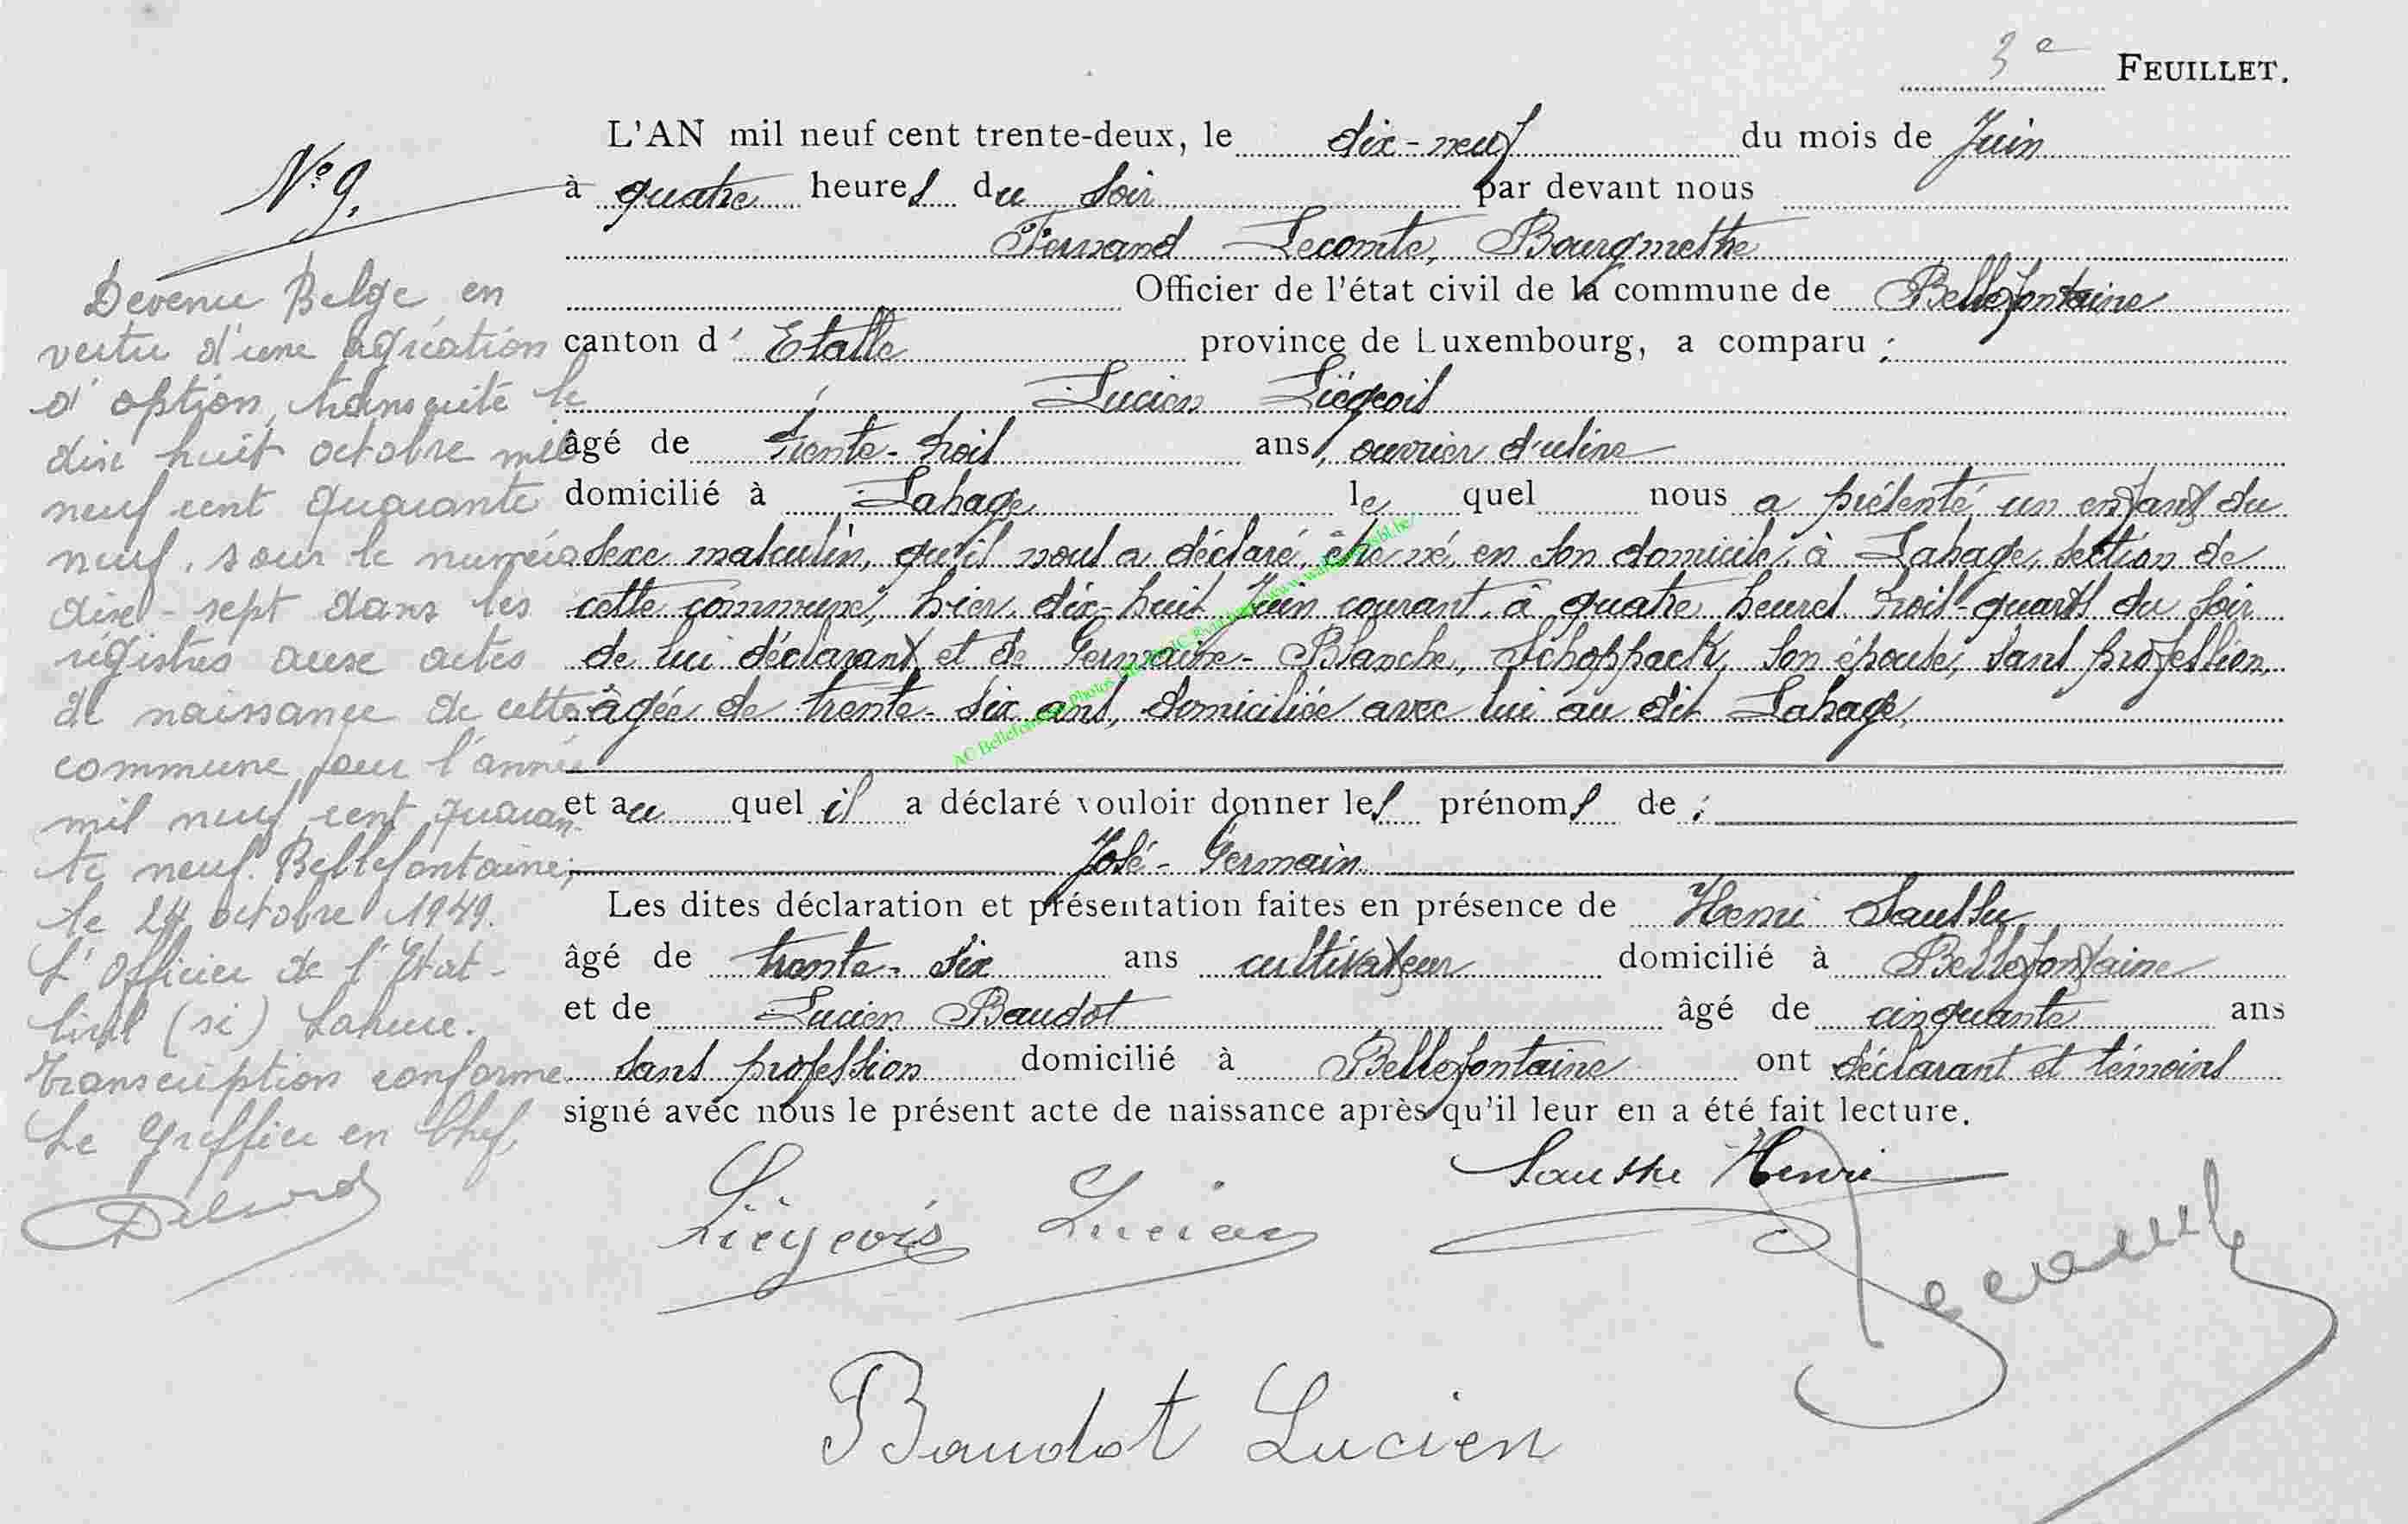 3e FEUILLET.
L'AN mil neuf cent trente-deux, le dix-neuf du mois de Juin
à quatre heures du soir par devant nous
Fernand Lecomte, Bourgmestre
Officier de l'état civil de la commune de Bellefontaine
canton d' Etalle province de Luxembourg, a comparu :
Lucien Liégeois
âgé de trente-trois ans, ouvrier d'usine
domicilié à Lahage lequel nous a présenté un enfant du
sexe masculin, qu'il nous a déclaré être né, en son domicile, à Lahage, section de
cette commune, hier, dix-huit Juin courant, à quatre heures trois-quarts du soir
de lui déclarant et de Germaine-Blanche, Schoppach, son épouse, sans profession,
âgée de trente-six ans, domiciliée avec lui au dit Lahage,
et au quel il a déclaré vouloir donner les prénoms de :
José-Germain
Les dites déclaration et présentation faites en présence de Henri
âgé de trente-six ans cultivateur domicilié à Bellefontaine
et de Lucien Baudot âgé de cinquante ans
sans profession domicilié à Bellefontaine ont déclarant et témoins
signé avec nous le présent acte de naissance après qu'il leur en a été fait lecture.
Liégeois Lucien
Henri
Baudot Lucien
N° 9.
Devenu Belge en
vertu d'une agréation
d'option, transcrite le
dix huit octobre mil
neuf cent quarante
neuf, sous le numéro
dix-sept dans les
registres aux actes
de naissance de cette
commune pour l'année
mil neuf cent quaran-
te neuf. Bellefontaine,
le 24 octobre 1949.
L'Officier de l'Etat-
Civil (sé)
Transcription conforme
Le Greffier en Chef,